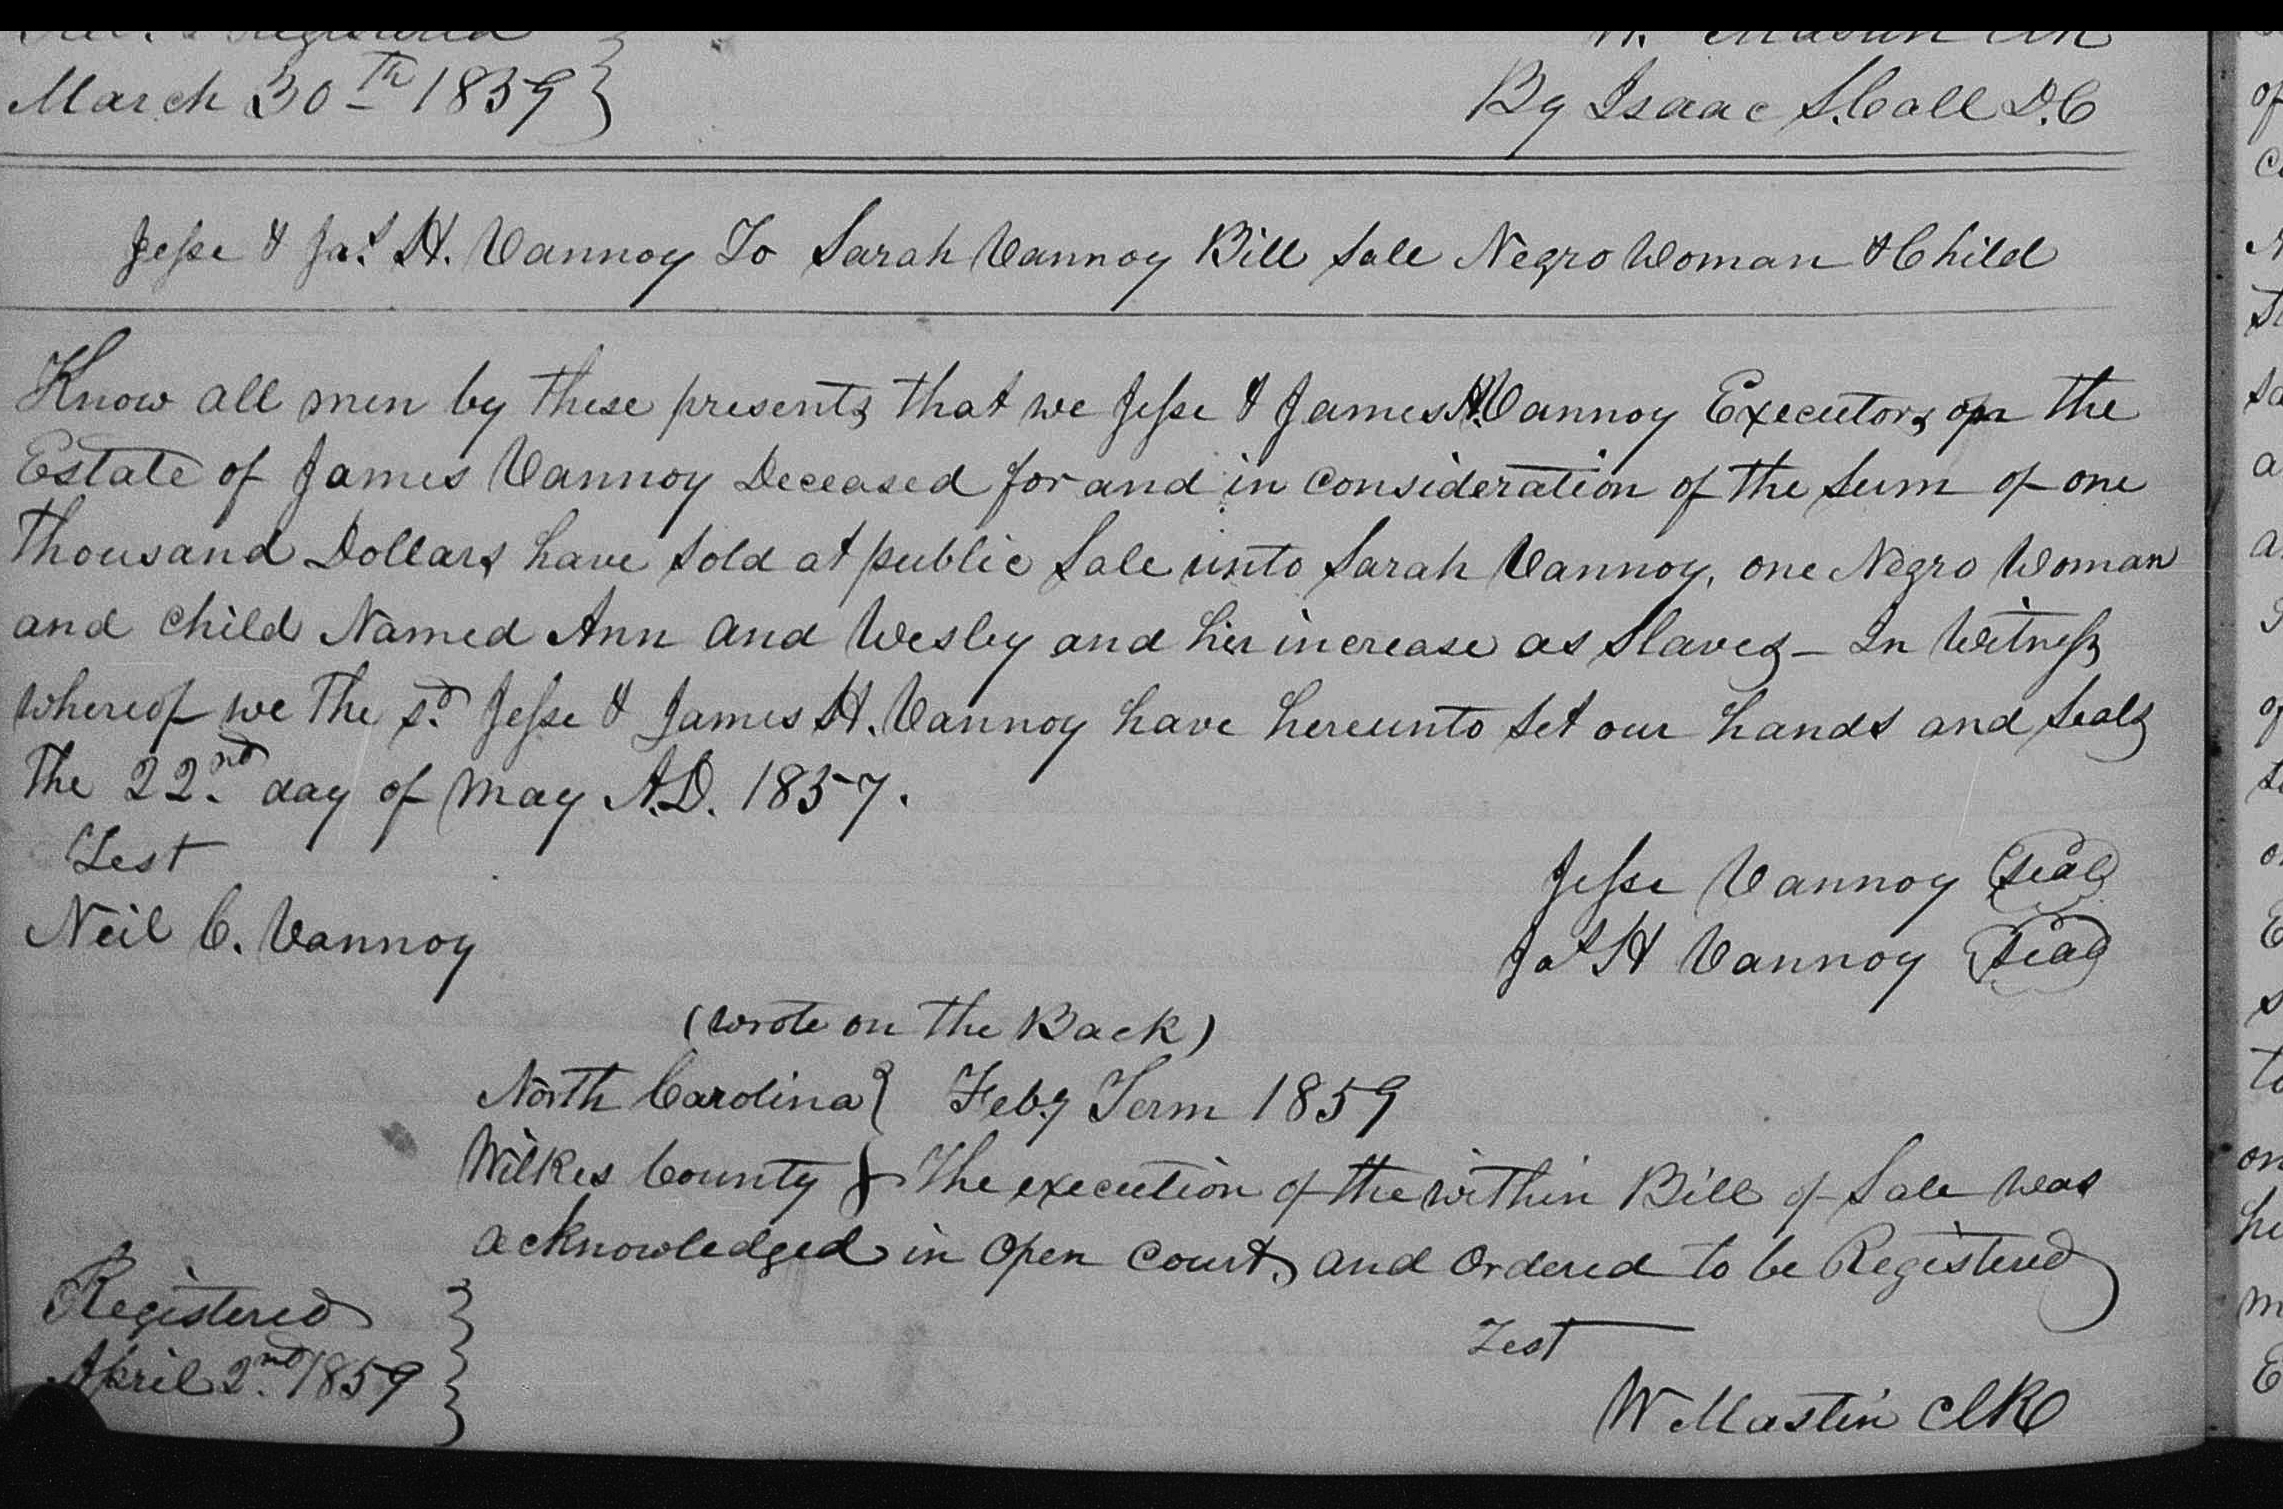 Rec. & Registered
March 30th 1859
W. Mastin Clk
By Isaac S. Call D.C
Jesse & Jas. H. Vannoy To Sarah Vannoy Bill Sale Negro Woman & Child
Know all men by these presents that we Jesse & James H. Vannoy Executors on the
Estate of James Vannoy Deceased for and in consideration of the Sum of one
thousand Dollars have sold at public Sale unto Sarah Vannoy, one Negro Woman
and child Named Ann and Wesley and her increase as Slaves – In Witness
whereof we the sd. Jesse & James H. Vannoy have hereunto set our hands and seals
the 22nd. day of May A.D. 1857.
Test
Neil C. Vannoy
Jesse Vannoy Seal
Jas H Vannoy Seal
(wrote on the Back)
North Carolina } Feby Term 1859
Wilkes County } The execution of the within Bill of Sale was
acknowledged in open Court, and ordered to be Registered
Registered
April 2nd. 1859
Test
W Mastin Clk